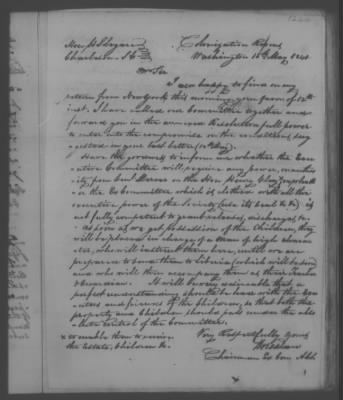 Hon. H S Legare
Charleston S.C.
Colonization Rooms
Washington 18th May 1841
My Dr Sir
I am happy to find on my
return from New York this morning your favor of 12th
inst. I have called our Committee together and
forward you in the enclosed Resolution full power
to enter into the compromise on the conditions sug
gested in your last letter (12th May).
Have the goodness to inform me whether the Exe
cutive Committee will require any power, or author
ity from
the Hon. Henry Clay
or the Ex Committee which is clothed with all the
executive power of the Society (see its
is
not fully competent to grant releases, discharges &c.
As soon as we get possession of the Children, they
will be placed in charge of a Man of high charac
ter, who will instruct them here, until we are
prepared to send them to Liberia (which will be soon)
and who will then accompany them as their Teacher
& Guardian. It will be very desirable that a
perfect understanding should be had with the Exe
cutors and friends of the Children, so that both the
property and Children should pass under the abso
lute control of the Committee.
Very Respectfully yours
x to enable them to receive
the Estate, Children &c.
Chairman Ex Com